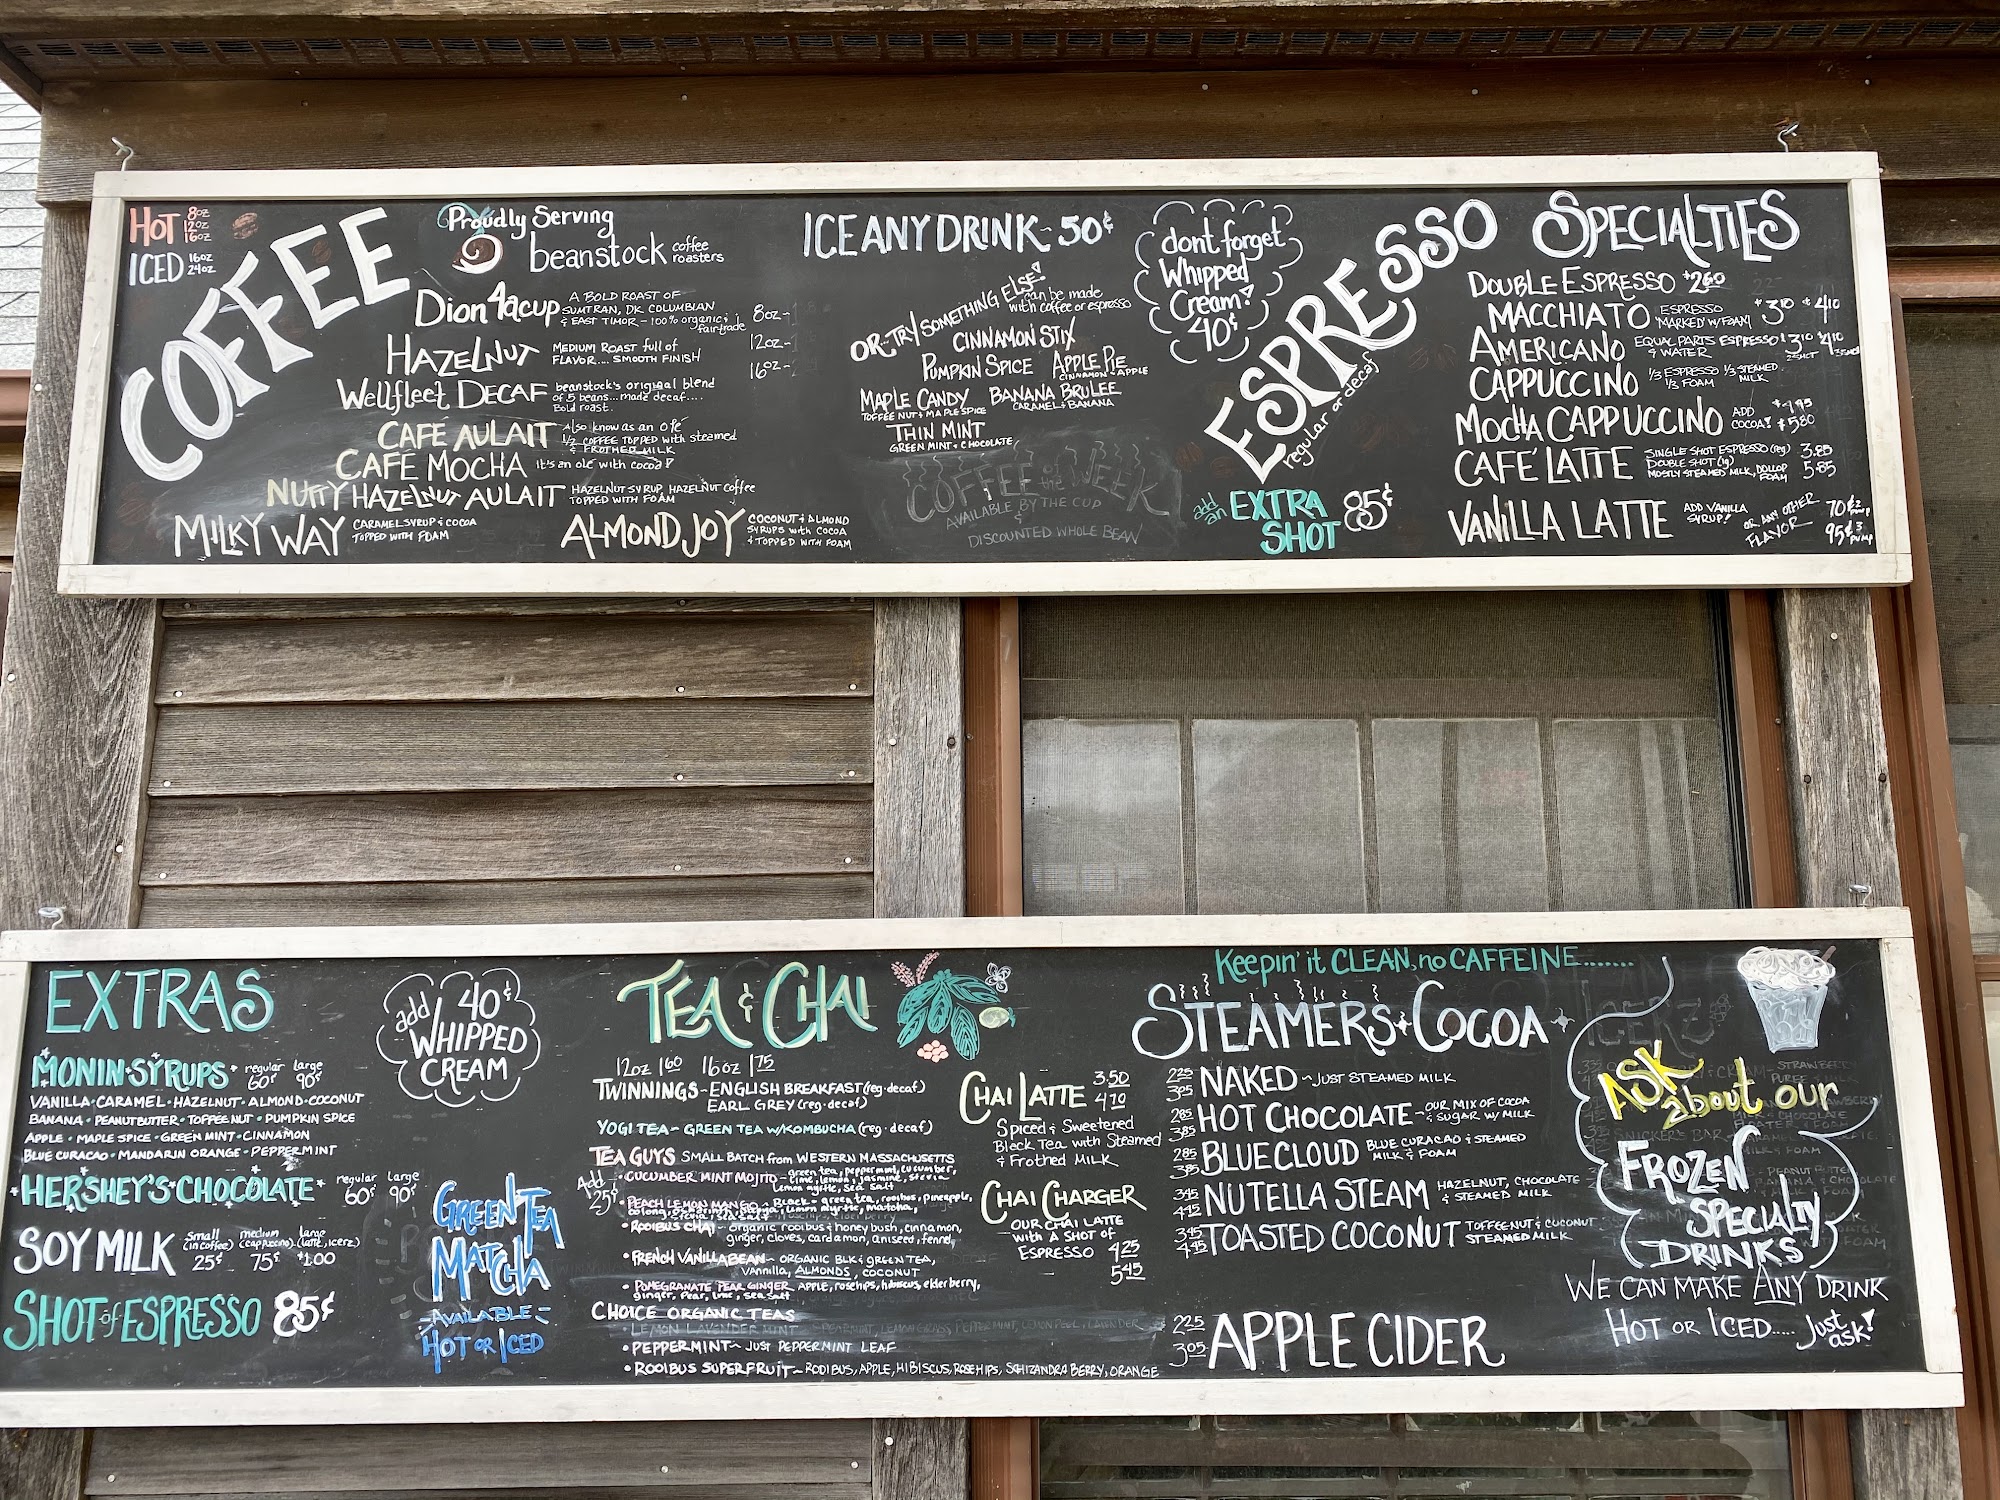 HOT 8oz 12oz 16oz
ICED 16oz 24oz
COFFEE
Proudly Serving
beanstock coffee roasters
Dion 4a cup A BOLD ROAST OF
SUMTRAN, DK COLUMBIAN
& EAST TIMOR - 100% organic &
fair trade
8oz-
HAZELNUT MEDIUM ROAST full of
FLAVOR.... SMOOTH FINISH
12oz-
16oz-
Wellfleet DECAF beanstock's original blend
of 5 beans...made decaf....
Bold roast.
CAFÉ AULAIT Also know as an olé
1/2 COFFEE TOPPED with steamed
& FROTHED MILK
CAFÉ MOCHA It's an olé with cocoa!
NUTTY HAZELNUT AULAIT HAZELNUT SYRUP, HAZELNUT coffee
TOPPED WITH FOAM
MILKY WAY CARAMEL SYRUP & COCOA
TOPPED WITH FOAM
ALMOND JOY COCONUT & ALMOND
SYRUPS with COCOA
& TOPPED WITH FOAM
ICE ANY DRINK - 50¢
OR-TRY SOMETHING ELSE!
can be made
with coffee or espresso
CINNAMON STIX
PUMPKIN SPICE APPLE PIE
CINNAMON & APPLE
MAPLE CANDY BANANA BRULEE
TOFFEE NUT & MAPLE SPICE CARAMEL & BANANA
THIN MINT
GREEN MINT & CHOCOLATE
COFFEE of the WEEK
AVAILABLE BY THE CUP
&
DISCOUNTED WHOLE BEAN
dont forget
Whipped
Cream!
40¢
ESPRESSO
regular or decaf
add an EXTRA SHOT 85¢
SPECIALTIES
DOUBLE ESPRESSO $2.60
MACCHIATO ESPRESSO
"MARKED" W/FOAM $3.10 $4.10
AMERICANO EQUAL PARTS ESPRESSO
& WATER 3.10 4.10
CAPPUCCINO 1/3 ESPRESSO 1/3 STEAMED MILK
1/3 FOAM
MOCHA CAPPUCCINO ADD COCOA! $4.95
$5.80
CAFÉ LATTE SINGLE SHOT ESPRESSO (reg) 3.85
DOUBLE SHOT (lg) 5.85
MOSTLY STEAMED MILK, DOLLOP FOAM
VANILLA LATTE ADD VANILLA SYRUP! OR ANY OTHER FLAVOR 70¢ 2 pump
95¢ 3 pump
EXTRAS
add 40¢
WHIPPED
CREAM
MONIN·SYRUPS· regular 60¢ large 90¢
VANILLA·CARAMEL·HAZELNUT·ALMOND·COCONUT
BANANA·PEANUTBUTTER·TOFFEE NUT·PUMPKIN SPICE
APPLE·MAPLE SPICE·GREEN MINT·CINNAMON
BLUE CURACAO·MANDARIN ORANGE·PEPPERMINT
HERSHEY'S CHOCOLATE regular 60¢ large 90¢
SOY MILK small (in coffee) 25¢ medium (cappuccino) 75¢ large (latte, icerz) $1.00
SHOT of ESPRESSO 85¢
GREEN TEA
MATCHA
-AVAILABLE-
HOT OR ICED
TEA & CHAI
12oz 1.60 16oz 1.75
TWINNINGS - ENGLISH BREAKFAST (reg·decaf)
EARL GREY (reg·decaf)
YOGI TEA - GREEN TEA W/KOMBUCHA (reg·decaf)
TEA GUYS SMALL BATCH from WESTERN MASSACHUSETTS
Add 25¢
•CUCUMBER MINT MOJITO - green tea, peppermint, cucumber,
lime, lemon, jasmine, stevia
lemon myrtle, sea salt
•PEACH LEMON MANGO - Black & green tea, rooibos, pineapple,
lemon myrtle, matcha,
stevia & sea salt
•ROOIBUS CHAI - organic rooibus & honeybush, cinnamon,
ginger, cloves, cardamon, aniseed, fennel
•FRENCH VANILLA BEAN - ORGANIC BLK & GREEN TEA,
Vannilla, ALMONDS, COCONUT
•POMEGRANATE PEAR GINGER APPLE, rosehips, hibiscus, elderberry,
ginger, Pear, lime, sea salt
CHOICE ORGANIC TEAS
•LEMON LAVENDER MINT - SPEARMINT, LEMON GRASS, PEPPERMINT, LEMON PEEL, LAVENDER
•PEPPERMINT ~ JUST PEPPERMINT LEAF
•ROOIBUS SUPERFRUIT - ROOIBUS, APPLE, HIBISCUS, ROSEHIPS, SCHIZANDRA BERRY, ORANGE
CHAI LATTE 3.50
4.70
Spiced & Sweetened
Black Tea with Steamed
& Frothed MILK
CHAI CHARGER
OUR CHAI LATTE
WITH A SHOT OF
ESPRESSO 4.25
5.45
Keepin' it CLEAN, no CAFFEINE.......
STEAMERS & COCOA
2.25 3.05 NAKED ~ JUST STEAMED MILK
2.85 3.85 HOT CHOCOLATE - OUR MIX OF COCOA
& SUGAR W/ MILK
2.85 3.85 BLUE CLOUD BLUE CURACAO & STEAMED
MILK & FOAM
3.45 4.45 NUTELLA STEAM HAZELNUT, CHOCOLATE
& STEAMED MILK
3.45 4.45 TOASTED COCONUT TOFFEE-NUT & COCONUT
STEAMED MILK
2.25 3.05 APPLE CIDER
ASK about our
FROZEN
SPECIALTY
DRINKS
WE CAN MAKE ANY DRINK
HOT OR ICED..... Just ask!